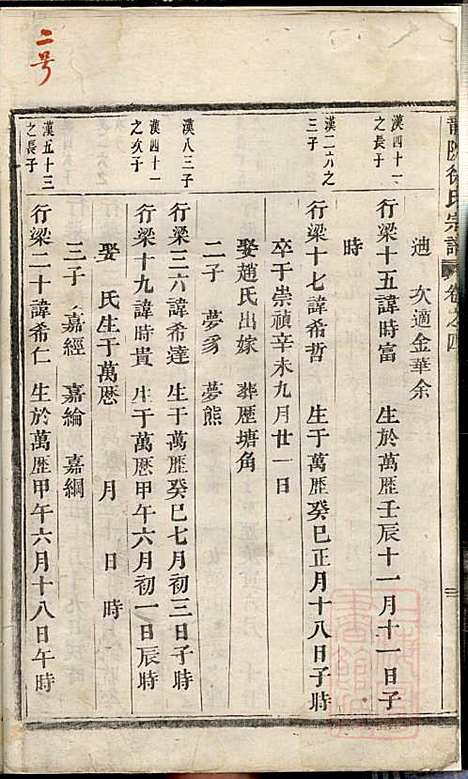 二号
徐氏宗譜 卷之四
迪 次適金華余
漢四十一
之長子
行梁十五諱時富 生於萬歷壬辰十一月十一日子
時
漢二六之
三子
行梁十七諱希哲 生于萬歷癸巳正月十八日子時
卒于崇禎辛未九月廿一日
娶趙氏出嫁 葬歷塘角
二子 夢豸 夢熊
漢八三子
行梁三六諱希達 生于萬歷癸巳七月初三日子時
漢四十一
之次子
行梁十九諱時貴 生于萬歷甲午六月初一日辰時
娶 氏生于萬歷 月 日 時
三子 嘉經 嘉綸 嘉綱
漢五十三
之長子
行梁二十諱希仁 生於萬歷甲午六月十八日午時